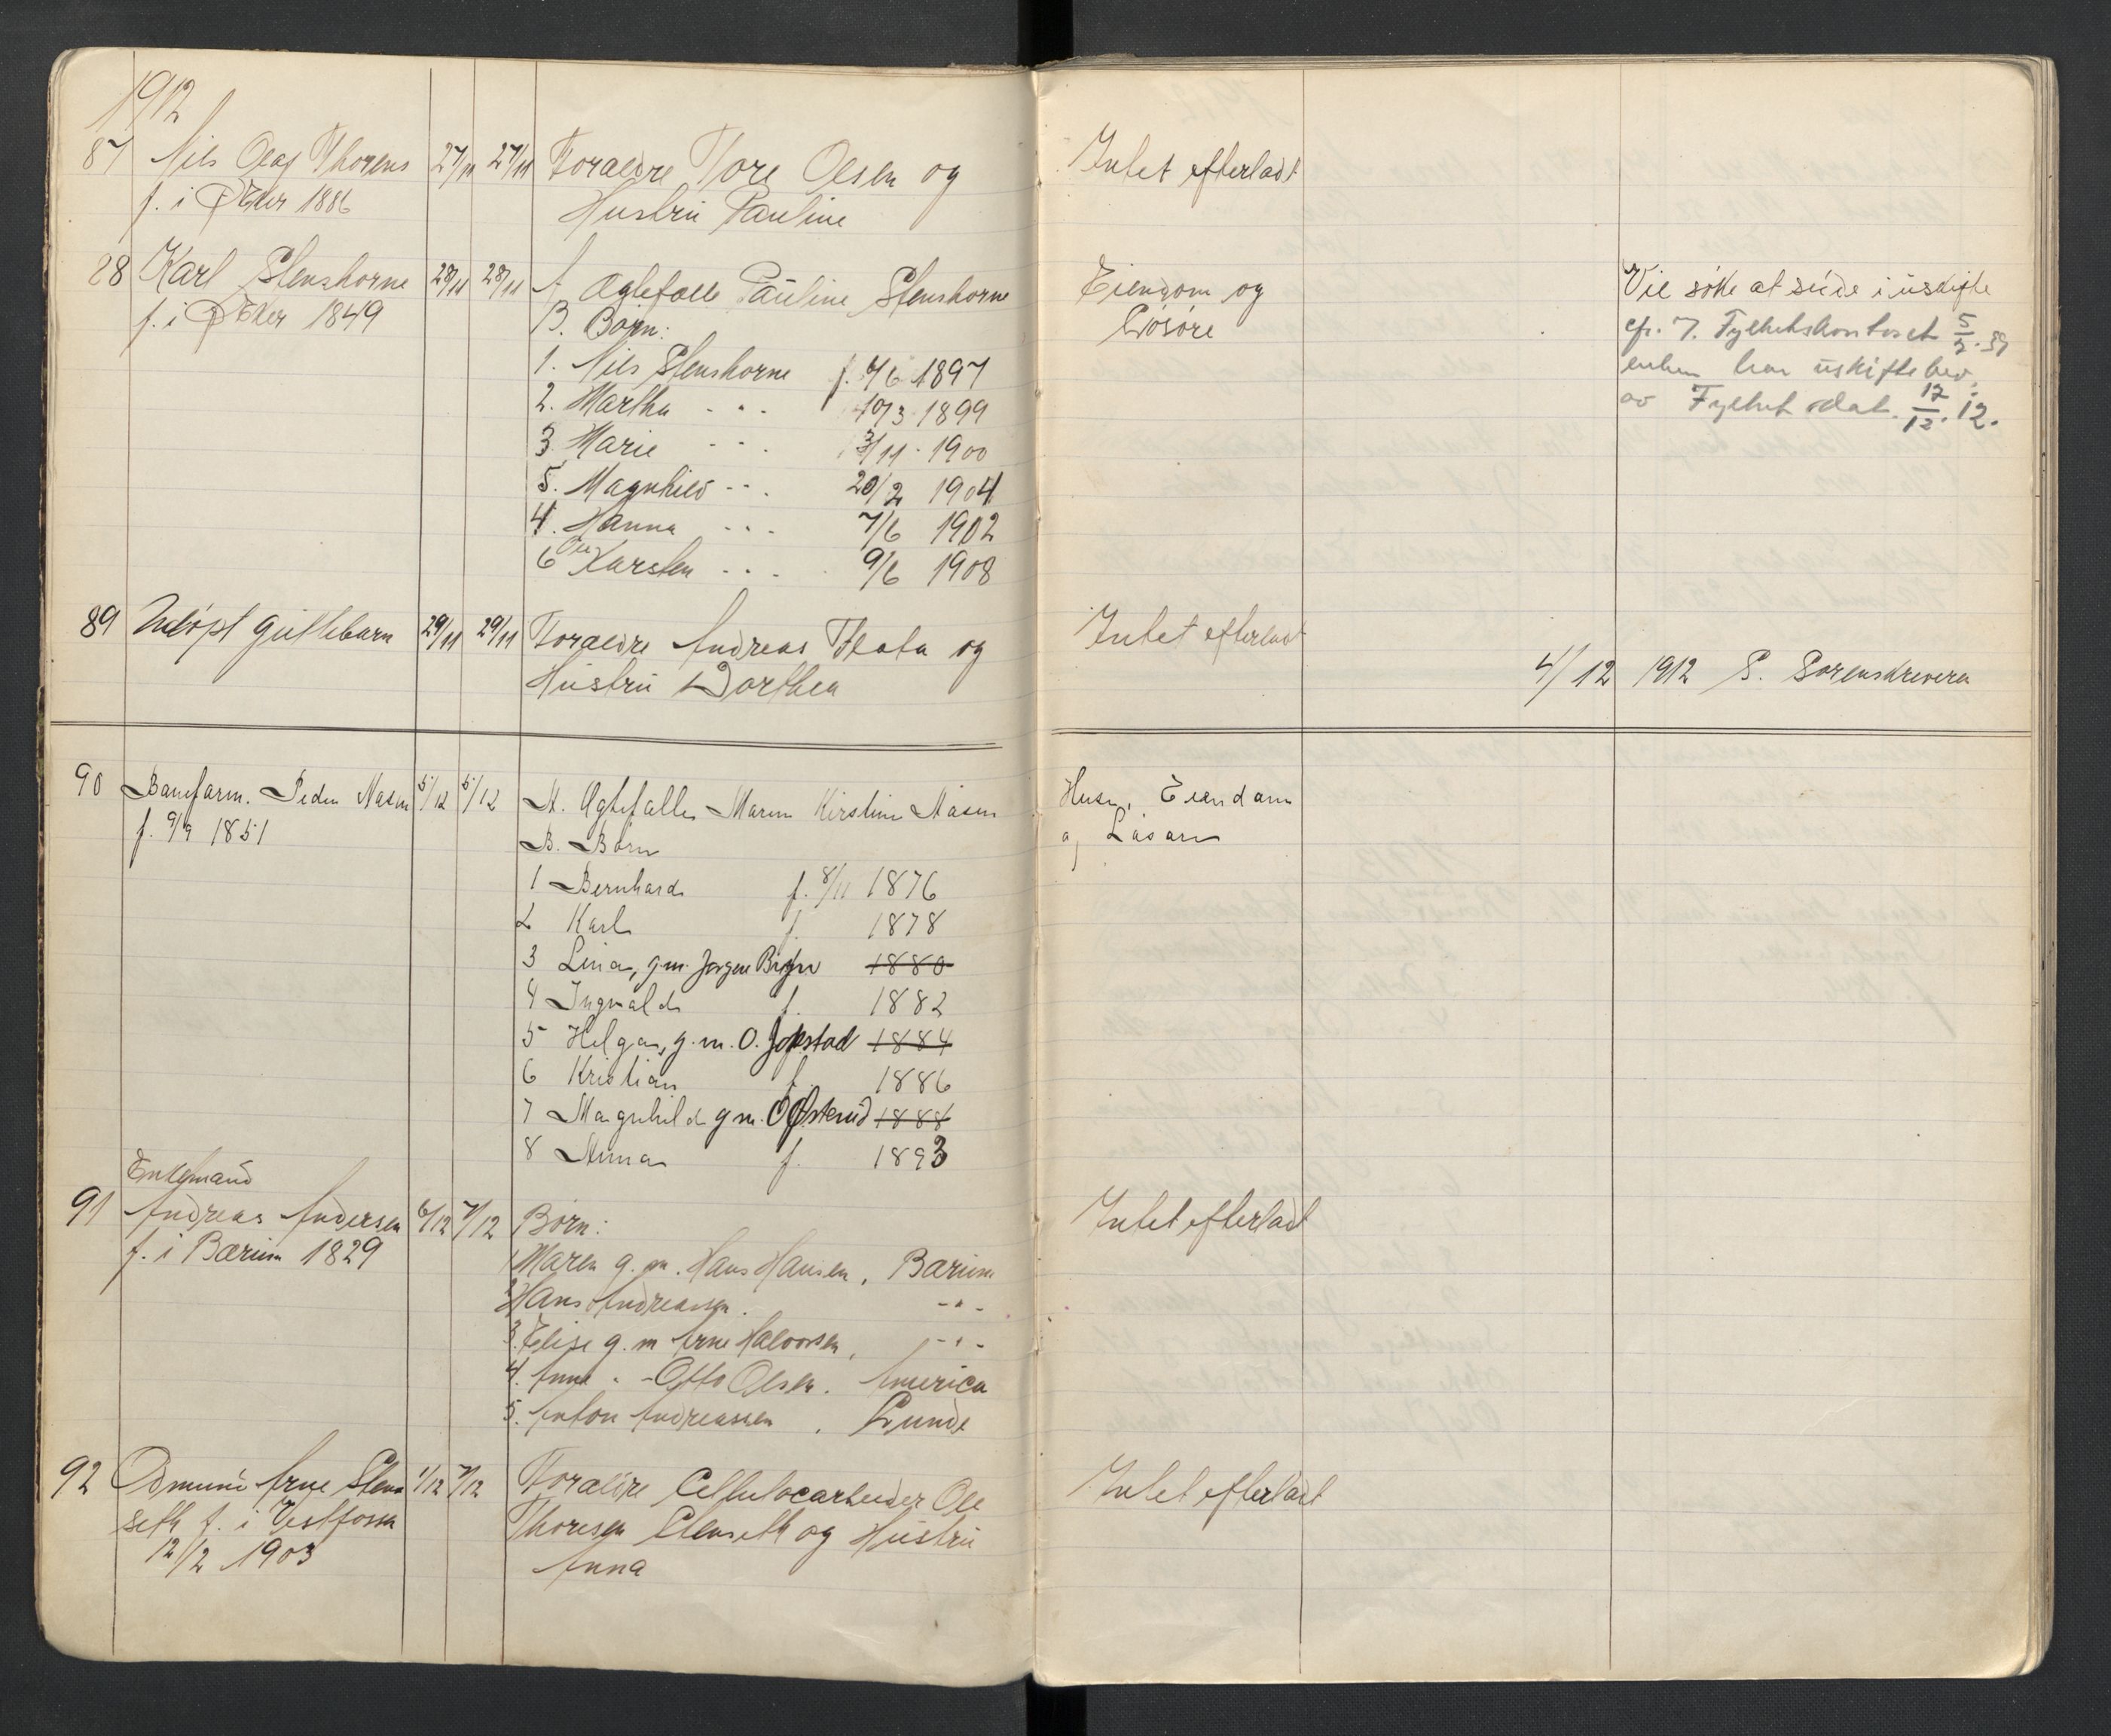 1912
87 Nils Olaf Thorens 27/11 27/11 Foraeldre Tore Olsen og Intet efterladt
f. i Ø Eker 1886 Hustru Pauline
28 Karl Stenshorne 28/11 28/11 A Ægtefælle Pauline Stenshorne Eiendom og Vil søke at sidde i uskifte
f. i Ø Eker 1849 B. Børn: Løsøre
1. Nils Stenshorne f. 7/6 1897 enken har uskiftebev.
2. Martha - " - 10/3 1899 av Fylket dat. 17/12. 12.
3 Marie - " - 3/11 1900
5. Magnhild - " - 20/2 1904
4. Hanna - " - 7/6 1902
6 Ole Karsten - " - 9/6 1908
89 Udøpt guttebarn 29/11 29/11 Foraeldre Andreas Flata og Intet efterladt
Hustru Dorthea
4/12 1912 S. Sorenskriveren
90 Baneform. Peder Aasen 5/12 5/12 A. Ægtefælle Maren Kirstine Aasen Huse, Eiendom
f. 9/9 1851 B. Børn og Løsøre
1 Bernhard f. 8/11 1876
2 Karl f. 1878
3 Lina, g.m. Jørgen 1880
4 Ingvald f. 1882
5 Helga, g.m. O. 1884
6 Kristian f. 1886
7 Magnhild g m. O 1888
8 Anna f. 1893
Enkemand
91 Andreas Andersen 6/12 7/12 Børn: Intet efterladt
f. i Bærum 1829 1 Maren g. m. Hans Hansen, Bærum
2 Hans Andreassen. - " -
3. Elise g. m Arne Halvorsen, - " -
4. Anna " - Otto Olsen. America
5. Anton Andreassen . Lunde
92 Odmund Arne Stens 1/12 7/12 Foraeldre Cellulosearbeider Ole Intet efterladt
seth f. i Vestfossen Thoresen Stenseth og Hustru
12/2 1903 Anna